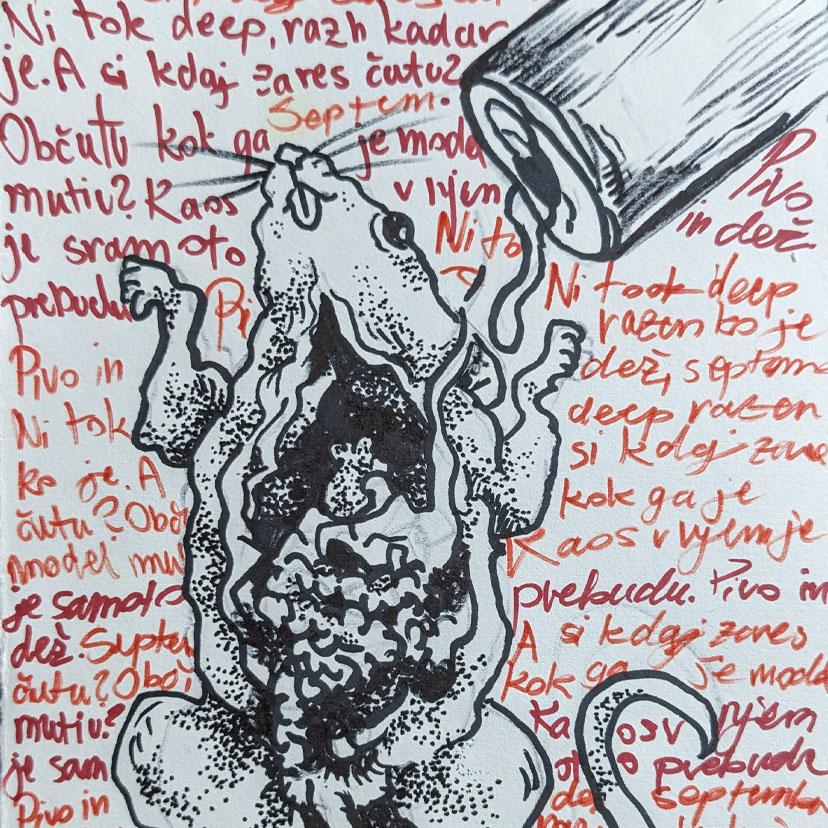 Ni tok deep, razn kadar
je. A si kdaj zares čutu?
Septem.
Občutu kok ga je model
mutiu? Kaos v njem
je sram oto
prebudu
Pivo
in dež
Ni to
Ni took deep
razen ko je
dež, septemb
deep razen
si kdaj zares
kok ga je
Kaos v njem je
prebudu. Pivo in
A si kdaj zares
kok ga je model
Ka osv njem
oto prebudu
dež septemb
Pivo in
Ni tok
ko je. A
čutu? Obč
model mu
je samoto
dež. Septem
čutu? Obč
mutiu?
je sam
Pivo in